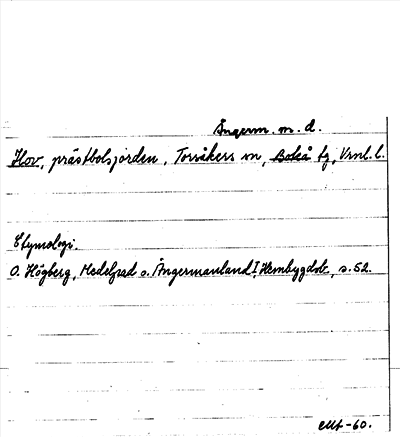 Ångerm. m. d.
Hov, prästbolsjorden, Torsåkers sn, Boteå tg, Vrnl. l.
Etymologi.
O. Högberg, Medelpad o. Ångermanland I, Hembygdsb., s. 52.
-60.